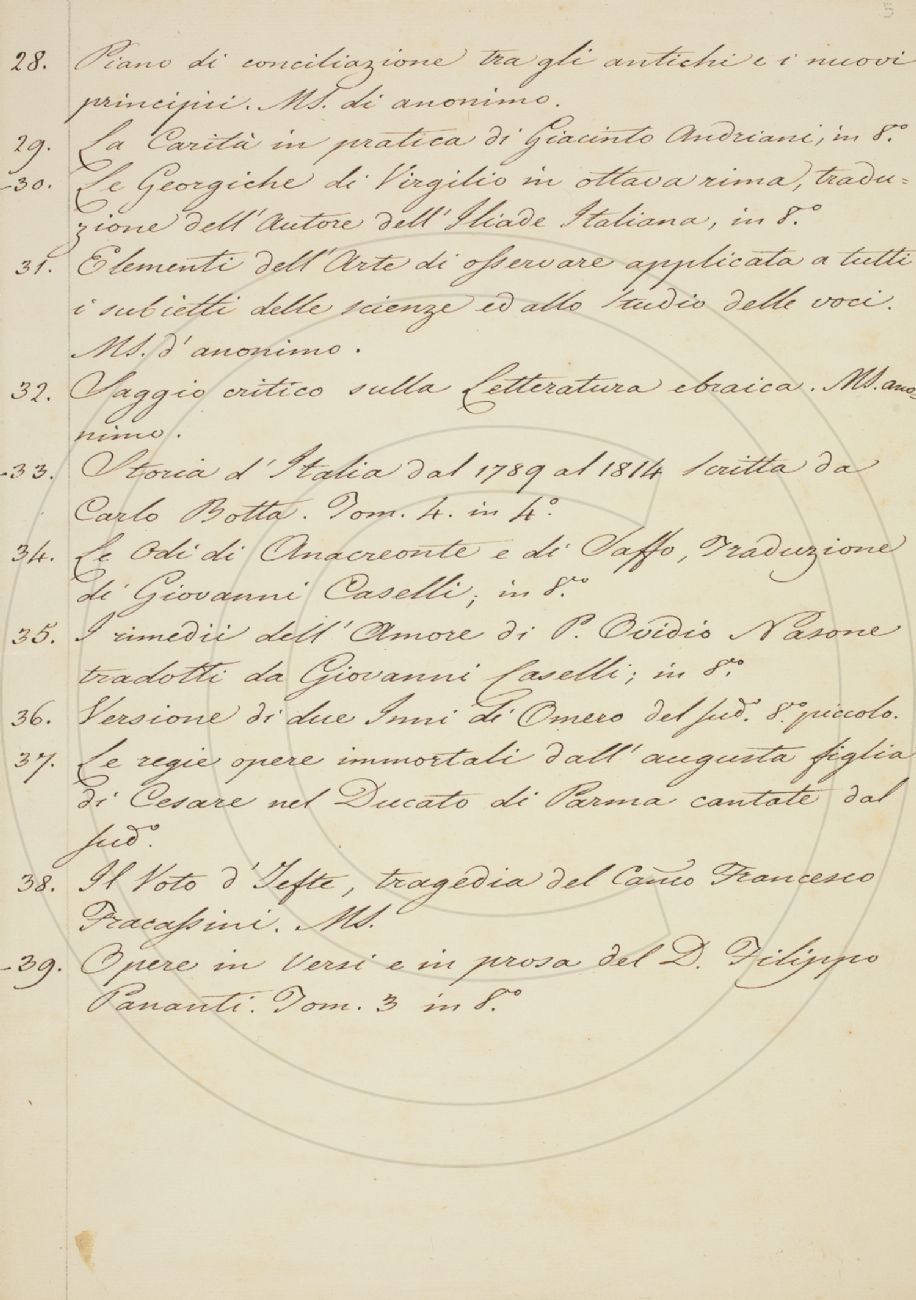 5
28. Piano di conciliazione tra gli antichi e i nuovi
principii. MS. di anonimo.
29. La Carità in pratica di Giacinto Andriani, in 8.º
-30. Le Georgiche di Virgilio in ottava rima, tradu=
zione dell'Autore dell'Iliade Italiana, in 8.º
31. Elementi dell'Arte di osservare applicata a tutti
i subietti delle scienze ed allo studio delle voci.
MS. d'anonimo.
32. Saggio critico sulla Letteratura ebraica. MS. ano=
nimo.
-33. Storia d'Italia dal 1789 al 1814 scritta da
Carlo Botta. Tom. 4. in 4.º
34. Le Odi di Anacreonte e di Saffo, Traduzione
di Giovanni Caselli; in 8.vo
35. I rimedii dell'Amore di P. Ovidio Nasone
tradotti da Giovanni Caselli; in 8.vo
36. Versione di due Inni di Omero del sudº. 8.º piccolo.
37. Le regie opere immortali dall'augusta figlia
di Cesare nel Ducato di Parma cantate dal
sudº.
38. Il Voto d'Jefte, tragedia del Canco Francesco
Fracassini. MS.
-39. Opere in versi e in prosa del D. Filippo
Pananti. Tom. 3 in 8.º